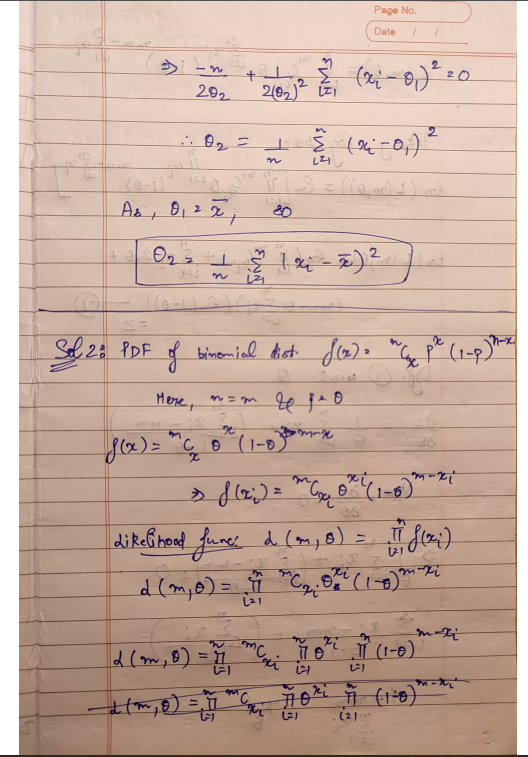 Page No.
Date / /
⇒ -n/2θ₂ + 1/2(θ₂)² Σⁿᵢ₌₁ (xᵢ - θ₁)² = 0
∴ θ₂ = 1/n Σⁿᵢ₌₁ (xᵢ - θ₁)²
As, θ₁ = x̄, so
θ₂ = 1/n Σⁿᵢ₌₁ (xᵢ - x̄)²
Sol 2: PDF of binomial dist. f(x) = ⁿCₓ pˣ (1-p)ⁿ⁻ˣ
Here, n = m & p = θ
f(x) = ᵐCₓ θˣ (1-θ)ᵐ⁻ˣ
⇒ f(xᵢ) = ᵐCₓᵢ θ^xᵢ (1-θ)^m-xᵢ
Likelihood func: L(m, θ) = Πⁿᵢ₌₁ f(xᵢ)
L(m, θ) = Πⁿᵢ₌₁ ᵐCₓᵢ θ^xᵢ (1-θ)^m-xᵢ
L(m, θ) = Πⁿᵢ₌₁ ᵐCₓᵢ Πⁿᵢ₌₁ θ^xᵢ Πⁿᵢ₌₁ (1-θ)^m-xᵢ
L(m, θ) = Πⁿᵢ₌₁ ᵐCₓᵢ Πⁿᵢ₌₁ θ^xᵢ Πⁿᵢ₌₁ (1-θ)^m-xᵢ